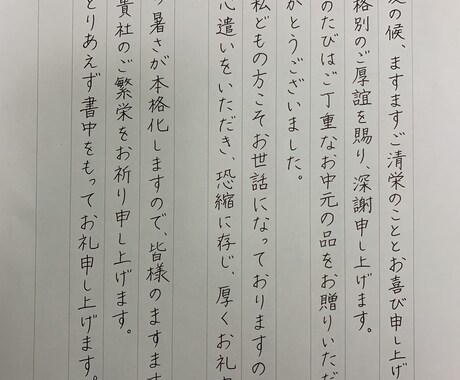 の候、ますますご清栄のこととお喜び申し上げ
格別のご厚誼を賜り、深謝申し上げます。
のたびはご丁重なお中元の品をお贈りいただ
がとうございました。
私どもの方こそお世話になっておりますの
心遣いをいただき、恐縮に存じ、厚くお礼
暑さが本格化しますので、皆様のますます
貴社のご繁栄をお祈り申し上げます。
とりあえず書中をもってお礼申し上げます。